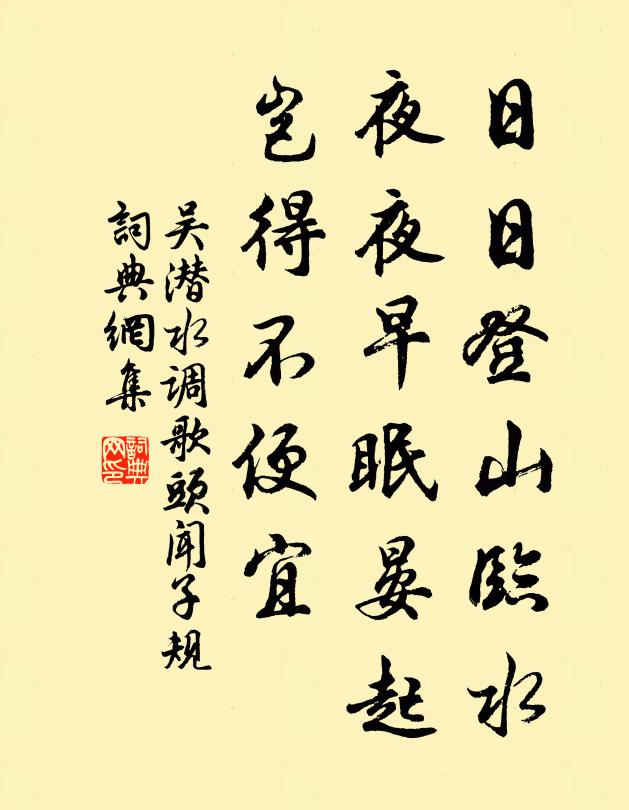 日日登山臨水
夜夜早眠晏起
岂得不便宜
吴潜水调歌頭闻子规
詞典網集
詞典网印